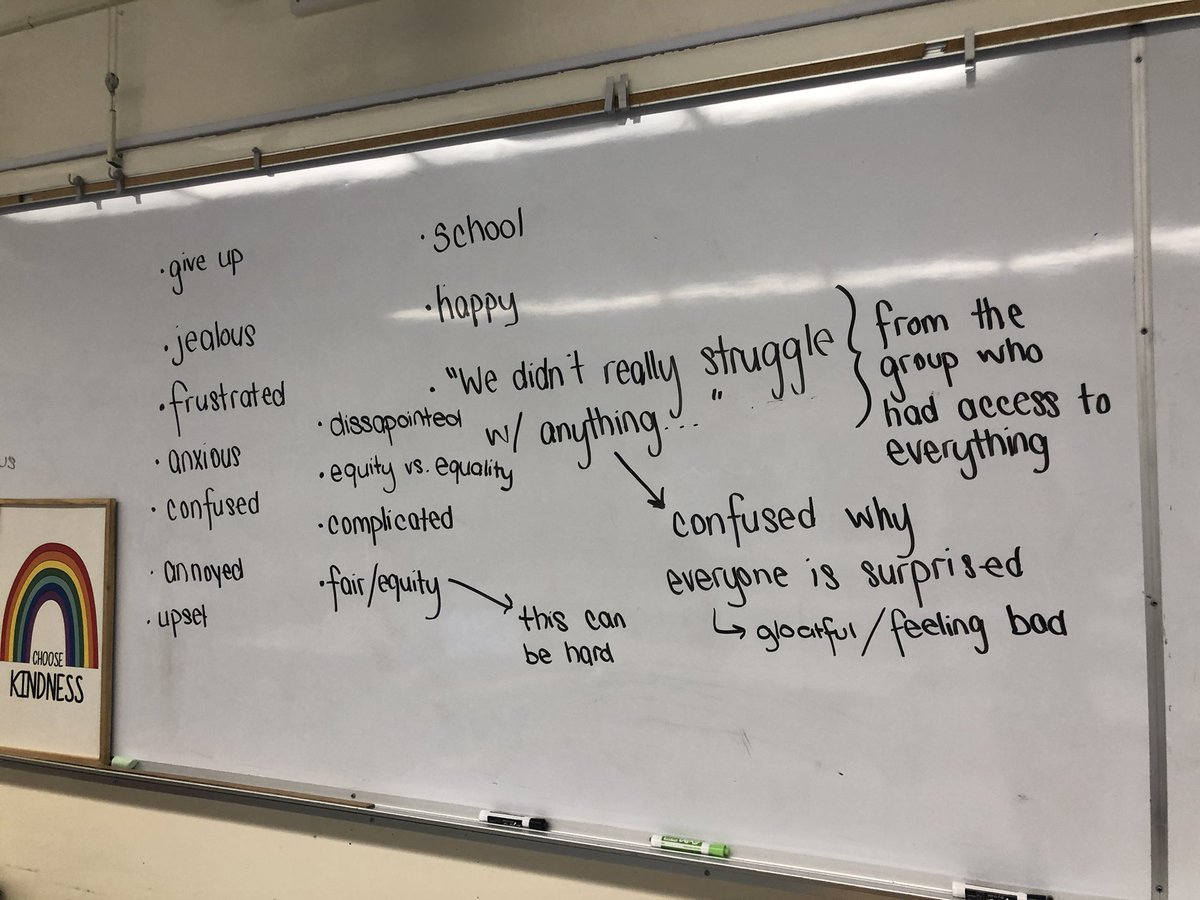 · give up
· jealous
· frustrated
· anxious
· confused
· annoyed
· upset
· dissapointed
· equity vs. equality
· complicated
· fair/equity
this can
be hard
· school
· happy
· "We didn't really struggle
w/ anything... "
from the
group who
had access to
everything
confused why
everyone is surprised
gloatful/feeling bad
CHOOSE
KINDNESS